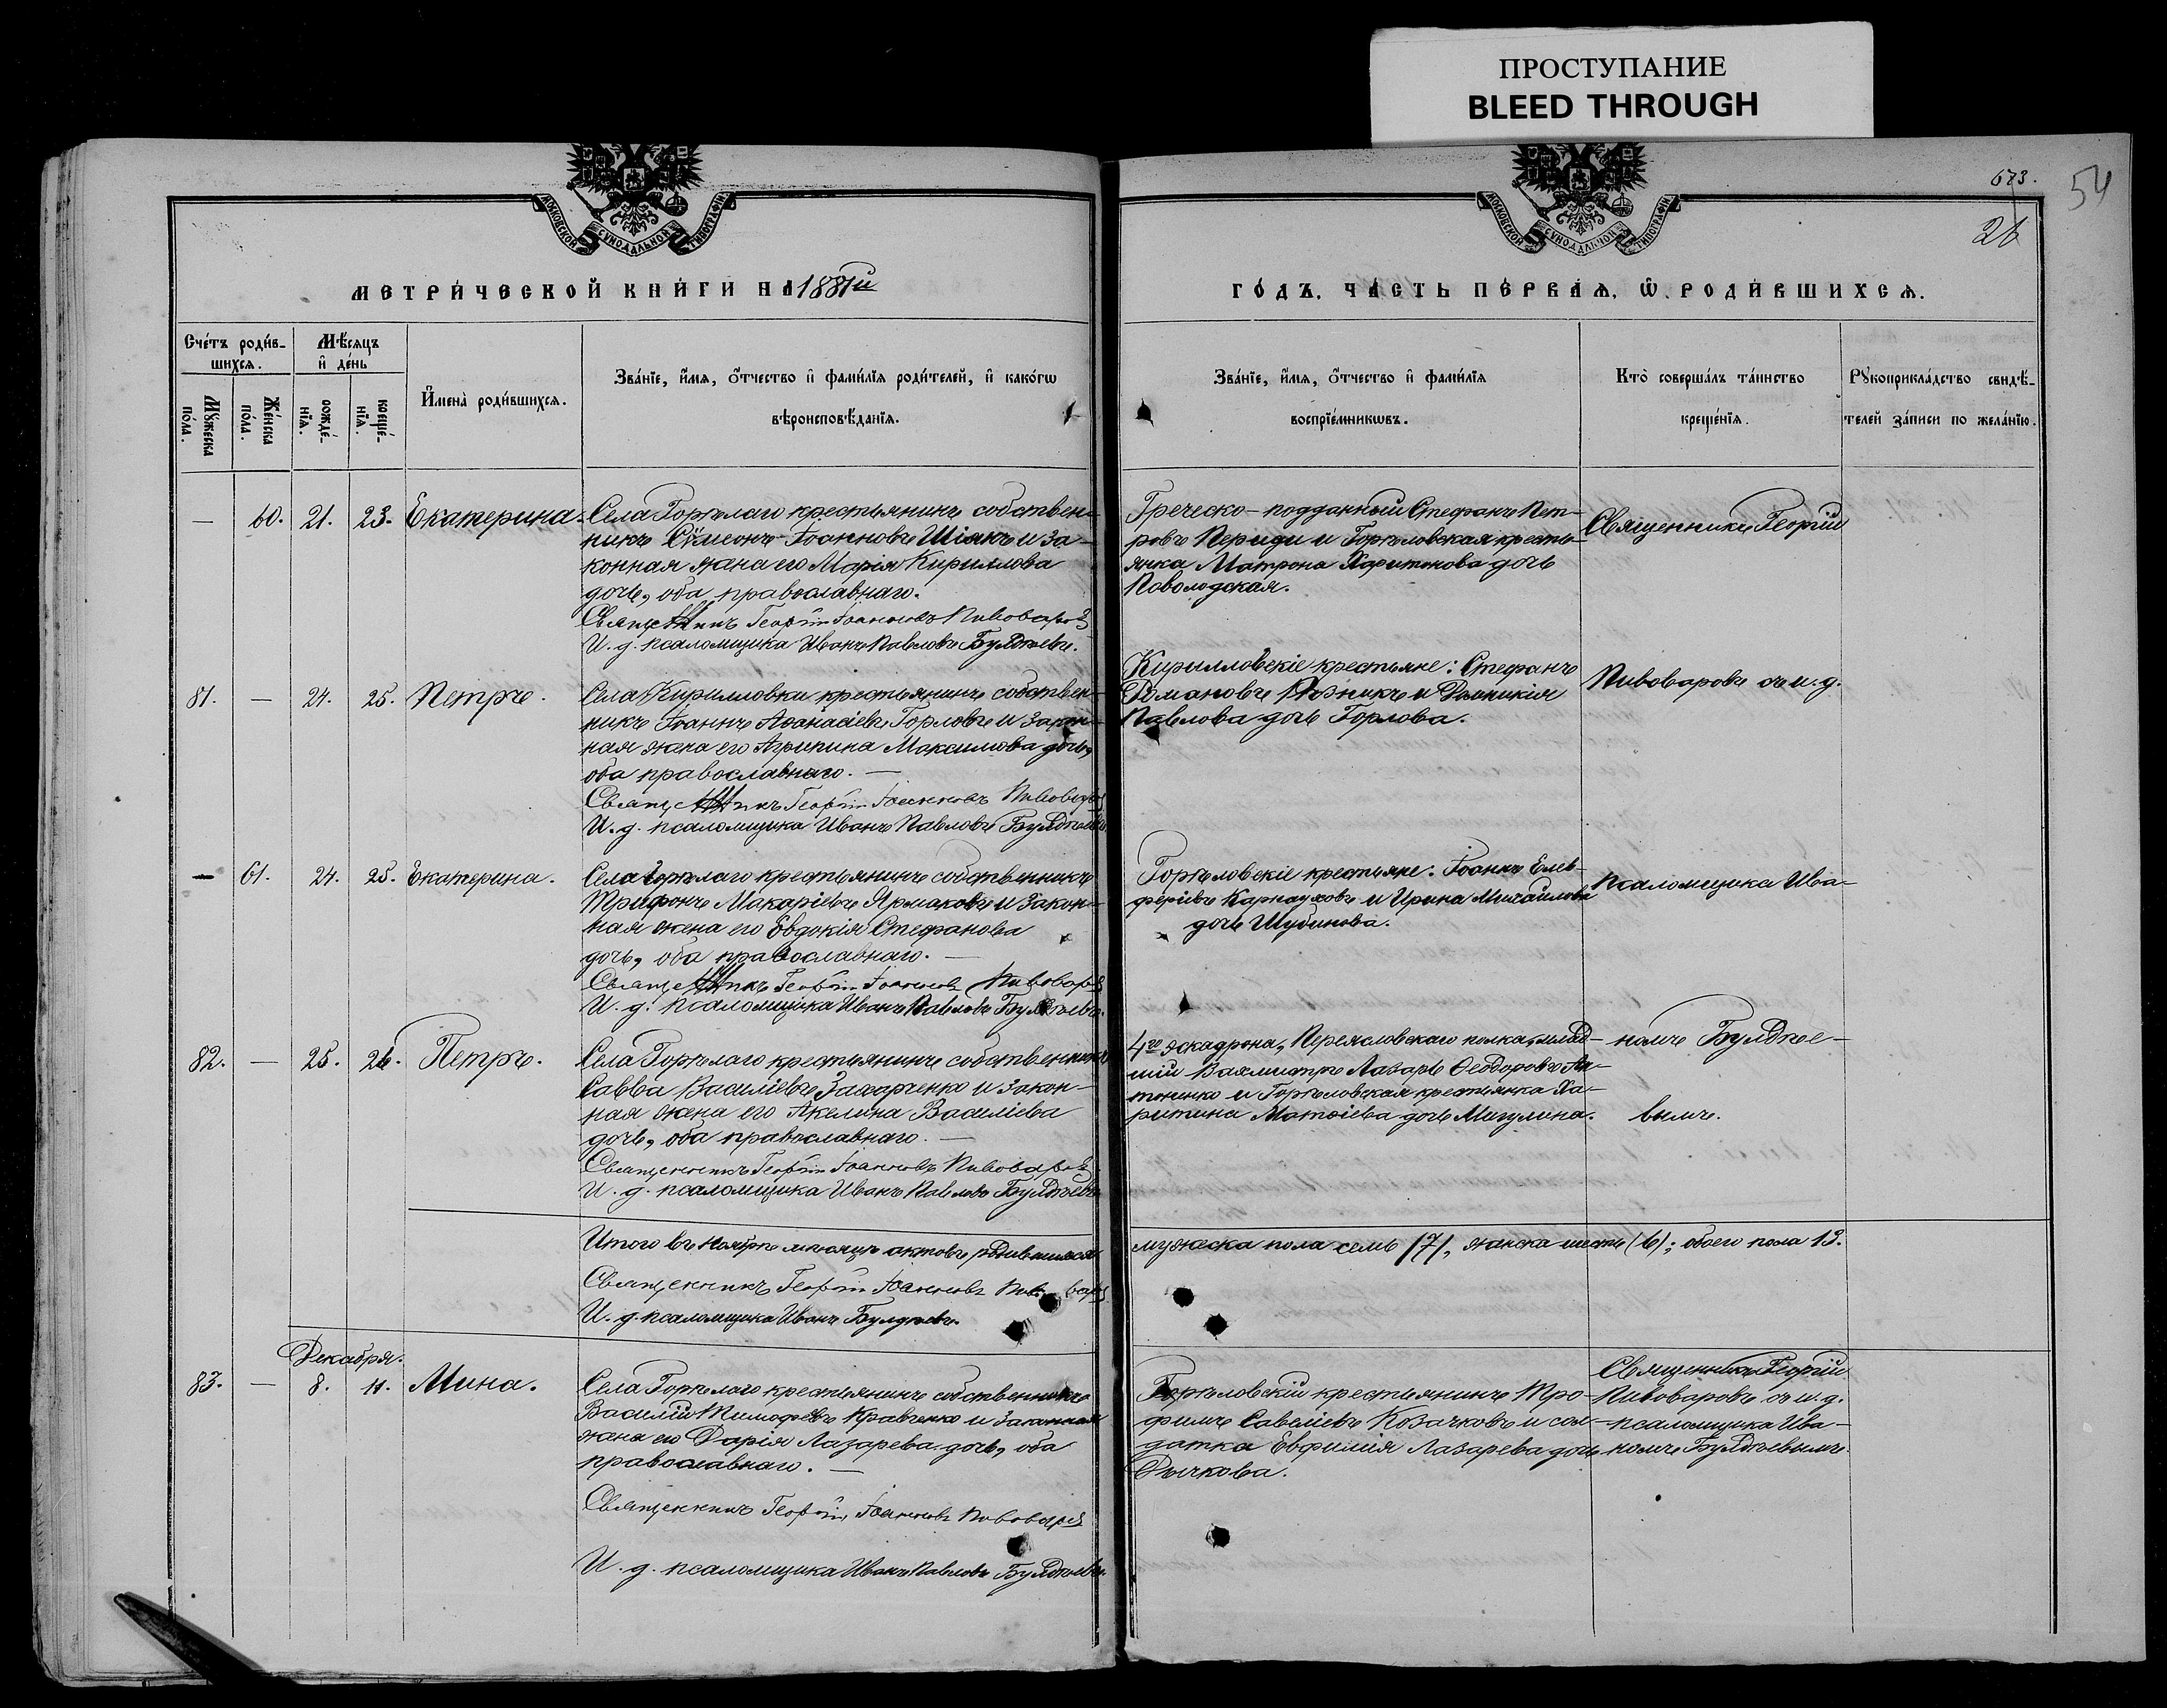 ПРОСТУПАНИЕ
BLEED THROUGH
673.
54
26
МОСКОВСКОЙ СУНОДАЛЬНОЙ ТИПОГРАФІИ
МОСКОВСКОЙ СУНОДАЛЬНОЙ ТИПОГРАФІИ
МЕТРИ́ЧЕСКОЙ КНИ́ГИ НА 1881й
ГО́ДЪ, ЧА́СТЬ ПЕ́РВАѦ, Ѡ РОДИ́ВШИХСѦ.
Сче́тъ роди́в-
шихсѧ.
Мѣ́сяцъ
и҆ де́нь
И҆мена̀ роди́вшихсѧ.
Зва́нїе, и҆́мѧ, ѻ҆́тчество и҆ фами́лїѧ роди́телей, и҆ како́гѡ
вѣроисповѣ́данїѧ.
Мꙋ́жеска по́ла.
Же́нска по́ла.
рожде́нїѧ.
креще́нїѧ.
Зва́нїе, и҆́мѧ, ѻ҆́тчество и҆ фами́лїѧ
воспрїе́мникѡвъ.
Кто̀ соверша́лъ та́инство
креще́нїѧ.
Рꙋкоприкла́дство свидѣ́-
телей за́писи по жела́нїю.
— 60. 21. 23. Екатерина. Села Горѣлаго крестьянинъ собствен-
никъ Сѵмеонъ Іоанновъ Шіянъ и за-
конная жена его Марія Кириллова
дочь, оба православнаго.
Священникъ Георгій Іоанновъ Пивоваровъ
И. д. псаломщика Иванъ Павловъ Булдѣевъ.
Греческо-подданный Стефанъ Пет-
ровъ Периди и Горѣловская кресть-
янка Матрона Харитонова дочь
Поволодская.
Священникъ Георгій
81. — 24. 25. Петръ. Села Кирилловки крестьянинъ собствен-
никъ Іоаннъ Аѳанасіевъ Горловъ и закон-
ная жена его Агрипина Максимова дочь,
оба православнаго. —
Священникъ Георгій Іоанновъ Пивоваровъ
И. д. псаломщика Иванъ Павловъ Булдѣевъ.
Кирилловскіе крестьяне: Стефанъ
Романовъ и Домникія
Павлова дочь Горлова.
Пивоваровъ съ и. д.
— 61. 24. 25. Екатерина. Села Горѣлаго крестьянинъ собственникъ
Трифонъ Макаріевъ Ярмаковъ и закон-
ная жена его Евдокія Стефанова
дочь, оба православнаго. —
Священникъ Георгій Іоанновъ Пивоваровъ
И. д. псаломщика Иванъ Павловъ Булдѣевъ.
Горѣловскіе крестьяне: Іоаннъ Елев-
феріевъ Карнауховъ и Ирина Михайлова
дочь Шубинова.
псаломщика Ива-
82. — 25. 26. Петръ. Села Горѣлаго крестьянинъ собственникъ
Савва Василіевъ Захарченко и закон-
ная жена его Акелина Василіева
дочь, оба православнаго. —
Священникъ Георгій Іоанновъ Пивоваровъ
И. д. псаломщика Иванъ Павловъ Булдѣевъ
4го эскадрона, Переясловскаго полка, млад-
шій Вахмистръ Лазарь Ѳеодоровъ Ан-
тоненко и Горѣловская крестьянка Ха-
ритина Матѳіева дочь Мигулина.
номъ Булдѣе-
вымъ.
Итого въ Ноябрѣ мѣсяцѣ актовъ родившихся
мужеска пола семь (7), женска шесть (6); обоего пола 13.
Священникъ Георгій Іоанновъ Пивоваровъ
И. д. псаломщика Иванъ Булдѣевъ.
Декабря.
83. — 8. 11. Мина. Села Горѣлаго крестьянинъ собственникъ
Василій Тимофеевъ Кравченко и законная
жена его Дарія Лазарева дочь, оба
православнаго. —
Священникъ Георгій Іоанновъ Пивоваровъ
И. д. псаломщика Иванъ Павловъ Булдѣевъ.
Горѣловскій крестьянинъ Тро-
фимъ Савеліевъ Козачковъ и сол-
датка Евфимія Лазарева дочь
Рычкова.
Священникъ Георгій
Пивоваровъ съ и. д.
псаломщика Ива-
номъ Булдѣевымъ.